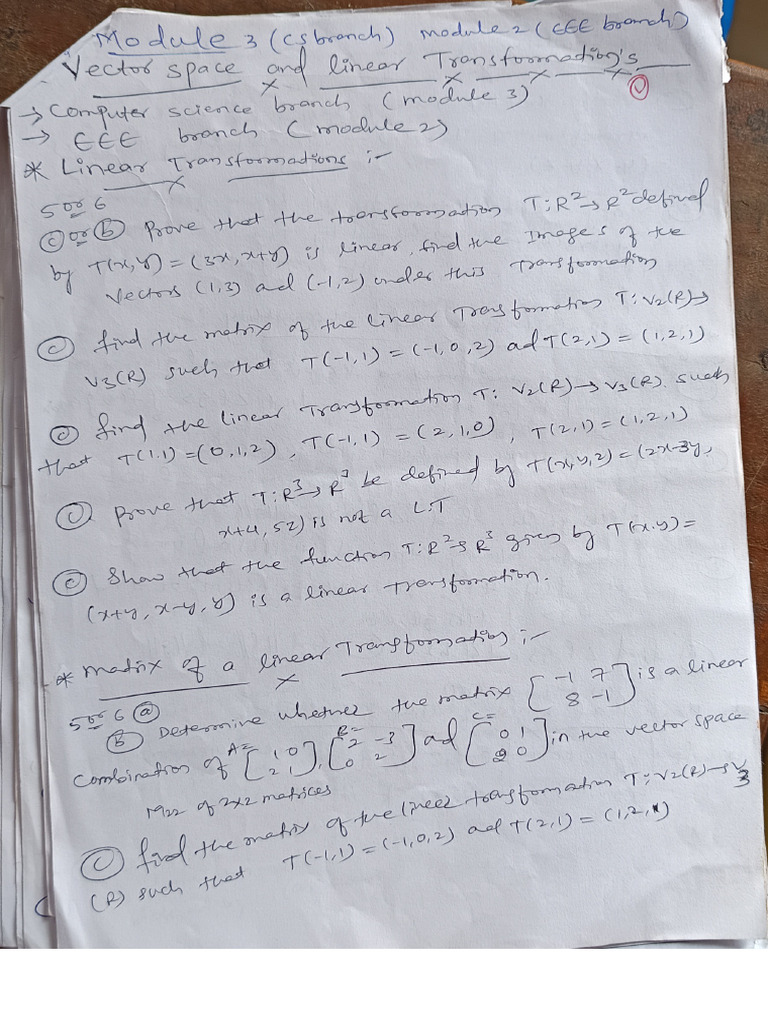 Module 3 (CS branch) Module 2 (EEE branch)
Vector space and linear Transformation's
→ Computer science branch (module 3)
→ EEE branch (module 2)
* Linear Transformations :-
5 or 6
(c) or (b) Prove that the transformation T: R² → R² defined
by T(x,y) = (3x, x+y) is linear, find the Images of the
vectors (1,3) ad (-1,2) under this transformation
(c) find the matrix of the linear Transformation T: V2(R) →
V3(R) such that T(-1,1) = (-1,0,2) ad T(2,1) = (1,2,1)
(c) find the linear Transformation T: V2(R) → V3(R) such
that T(1.1) = (0,1,2), T(-1,1) = (2,1,0), T(2,1) = (1,2,1)
Prove that T: R³ → R³ be defined by T(x,y,z) = (2x-3y,
x+4, 5z) is not a L.T
(c) Show that the function T: R² → R³ given by T(x.y) =
(x+y, x-y, y) is a linear transformation.
* matrix of a linear Transformation :-
5 or 6 (a)
(b) Determine whether the matrix [-1 7 8 -1] is a linear
combination of A= [1 0 2 1], B= [2 -3 0 2] ad C= [0 1 2 0] in the vector space
M22 of 2x2 matrices
(c) find the matrix of the linear transformation T: V2(R) → V3
(R) such that T(-1,1) = (-1,0,2) ad T(2,1) = (1,2,1)